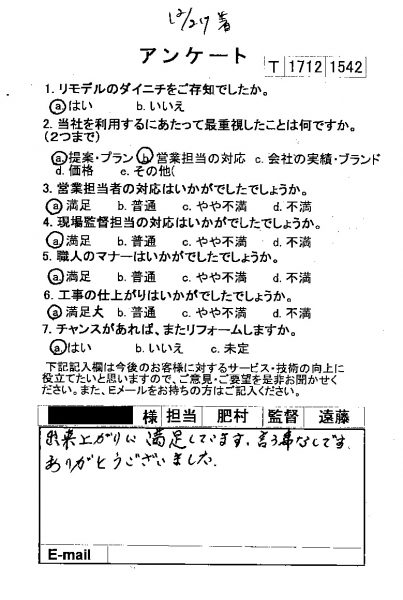 12/27着
アンケート
T 1712 1542
1. リモデルのダイニチをご存知でしたか。
a はい b. いいえ
2. 当社を利用するにあたって最重視したことは何ですか。
(2つまで)
a 提案・プラン b 営業担当の対応 c. 会社の実績・ブランド
d. 価格 e. その他(
3. 営業担当者の対応はいかがでしたでしょうか。
a 満足 b. 普通 c. やや不満 d. 不満
4. 現場監督担当の対応はいかがでしたでしょうか。
a 満足 b. 普通 c. やや不満 d. 不満
5. 職人のマナーはいかがでしたでしょうか。
a 満足 b. 普通 c. やや不満 d. 不満
6. 工事の仕上がりはいかがでしたでしょうか。
a 満足大 b. 普通 c. やや不満 d. 不満
7. チャンスがあれば、またリフォームしますか。
a はい b. いいえ c. 未定
下記記入欄は今後のお客様に対するサービス・技術の向上に
役立てたいと思いますので、ご意見・ご要望を是非お聞かせく
ださい。また、Eメールをお持ちの方はご記入ください。
様 担当 肥村 監督 遠藤
出来上がりに満足しています。言う事なしです。
ありがとうございました。
E-mail